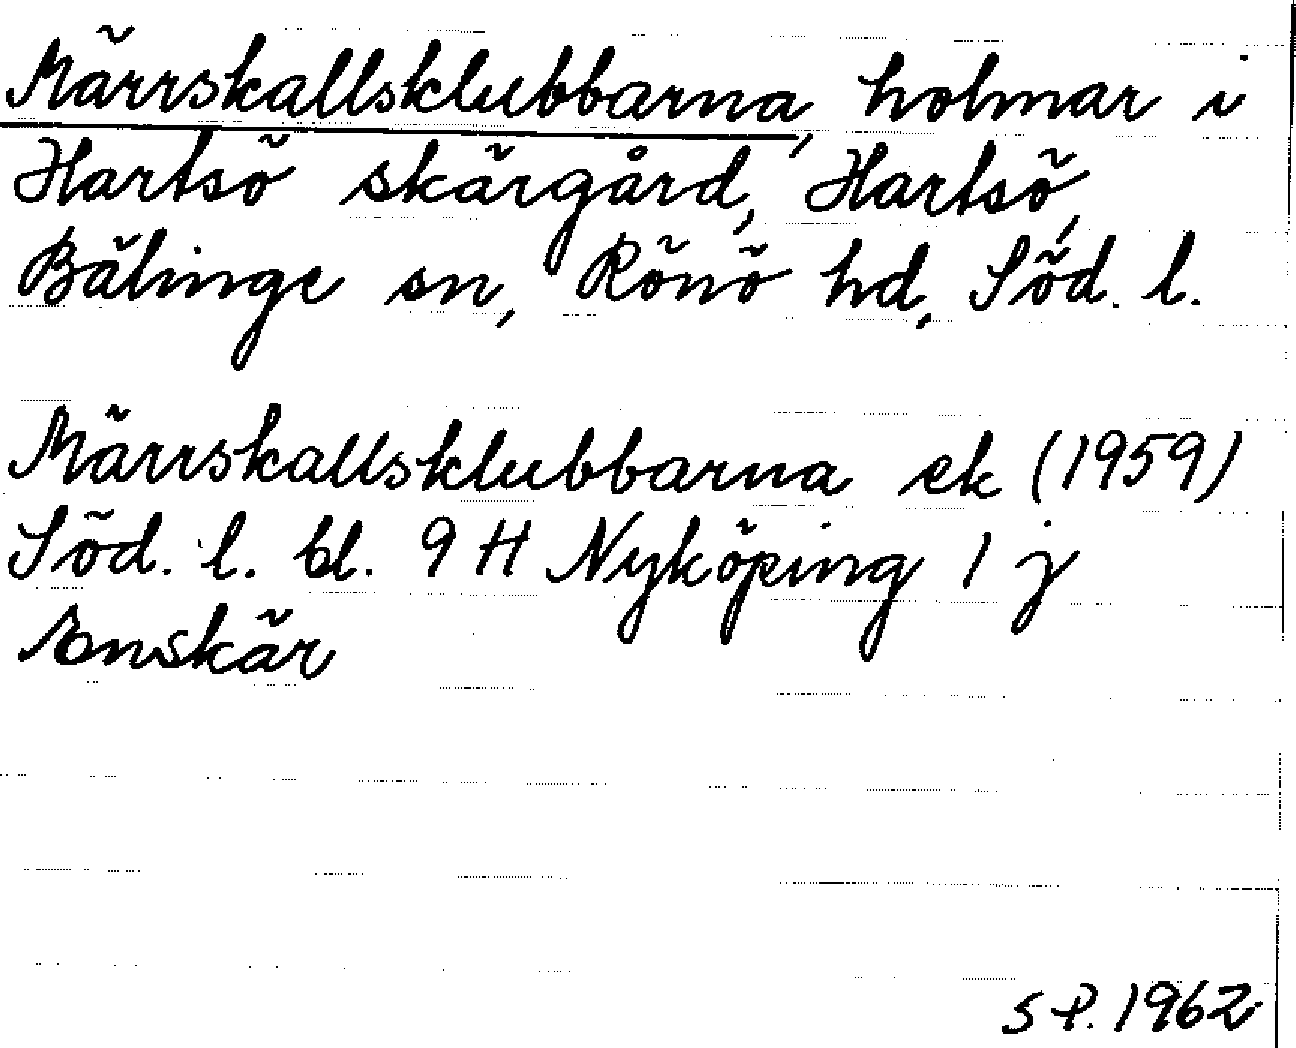 Märrskallsklubbarna, holmar i
Hartsö skärgård, Hartsö,
Bälinge sn, Rönö hd, Söd. l.
Märrskallsklubbarna ek (1959)
Söd. l. bl. 9 H Nyköping 1 j
Enskär
SP. 1962